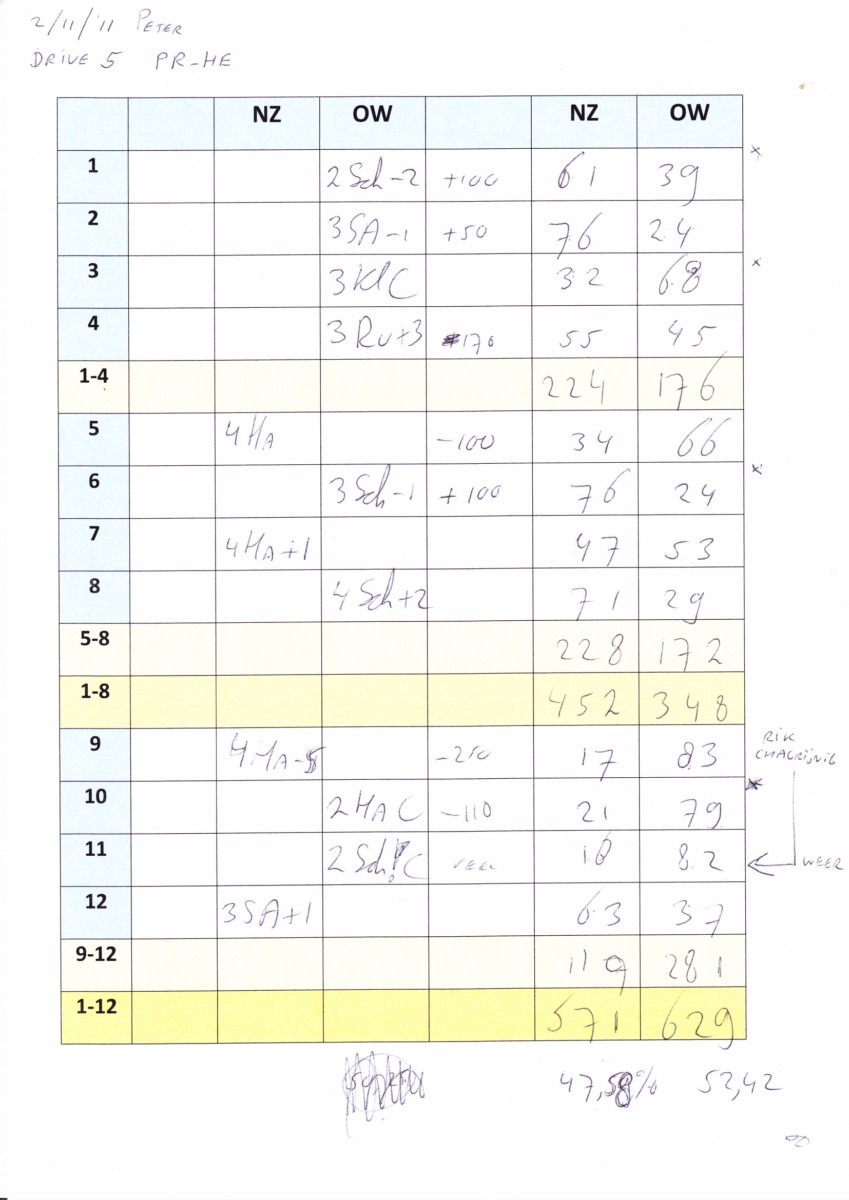 2/11/'11 PETER
DRIVE 5 PR-HE
NZ OW NZ OW
1 2 Sch-2 +100 61 39 x
2 3SA-1 +50 76 24
3 3 Kl C 32 68 x
4 3 Ru+3 170 55 45
1-4 224 176
5 4 HA -100 34 66
6 3 Sch-1 +100 76 24 x
7 4 HA+1 47 53
8 4 Sch+2 71 29
5-8 228 172
1-8 452 348
9 4 HA-5 -250 17 83
RIK
CHAGRIJNIG
10 2 HA C -110 21 79 x
11 2 Sch!C 18 82 WEER
12 3SA+1 63 37
9-12 119 281
1-12 571 629
47,58% 52,42